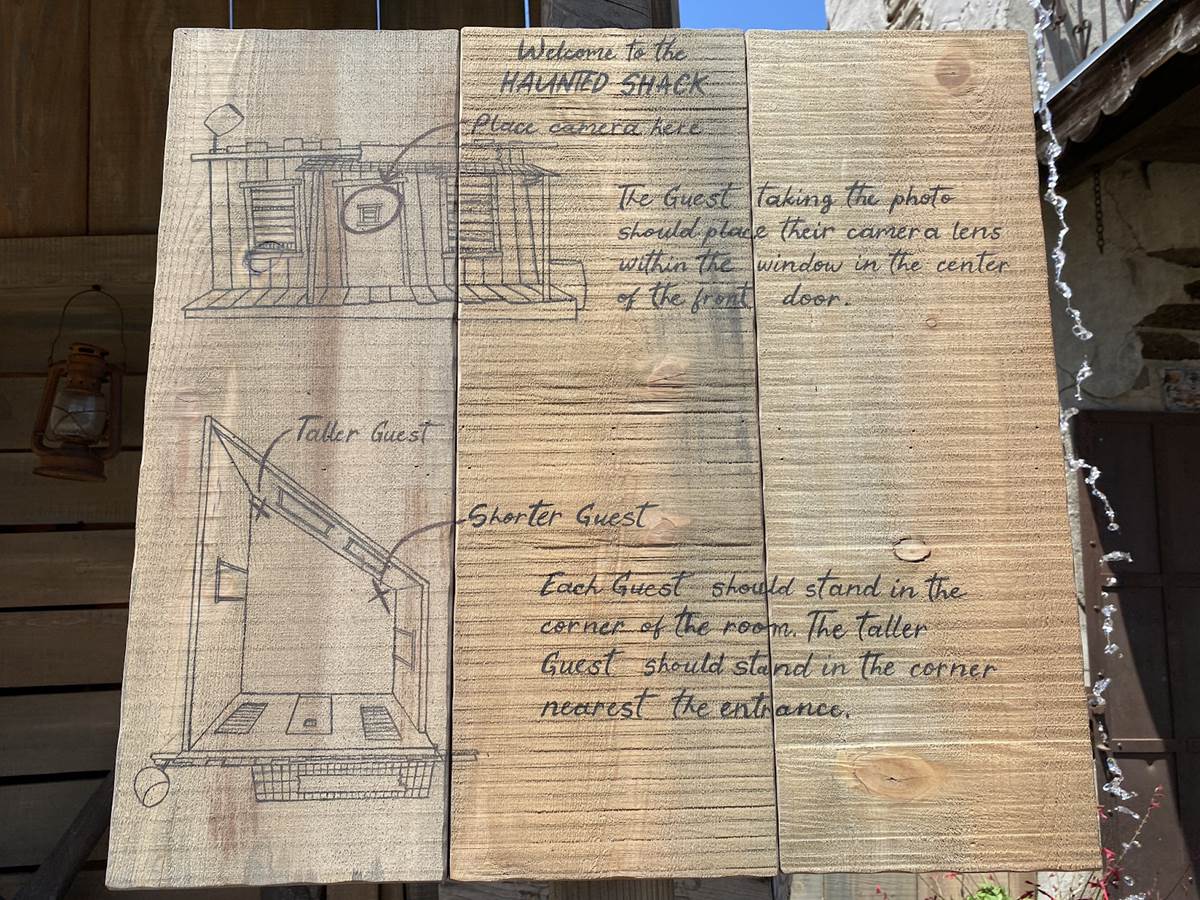 Welcome to the
HAUNTED SHACK
Place camera here
The Guest taking the photo
should place their camera lens
within the window in the center
of the front door.
Taller Guest
Shorter Guest
Each Guest should stand in the
corner of the room. The taller
Guest should stand in the corner
nearest the entrance.